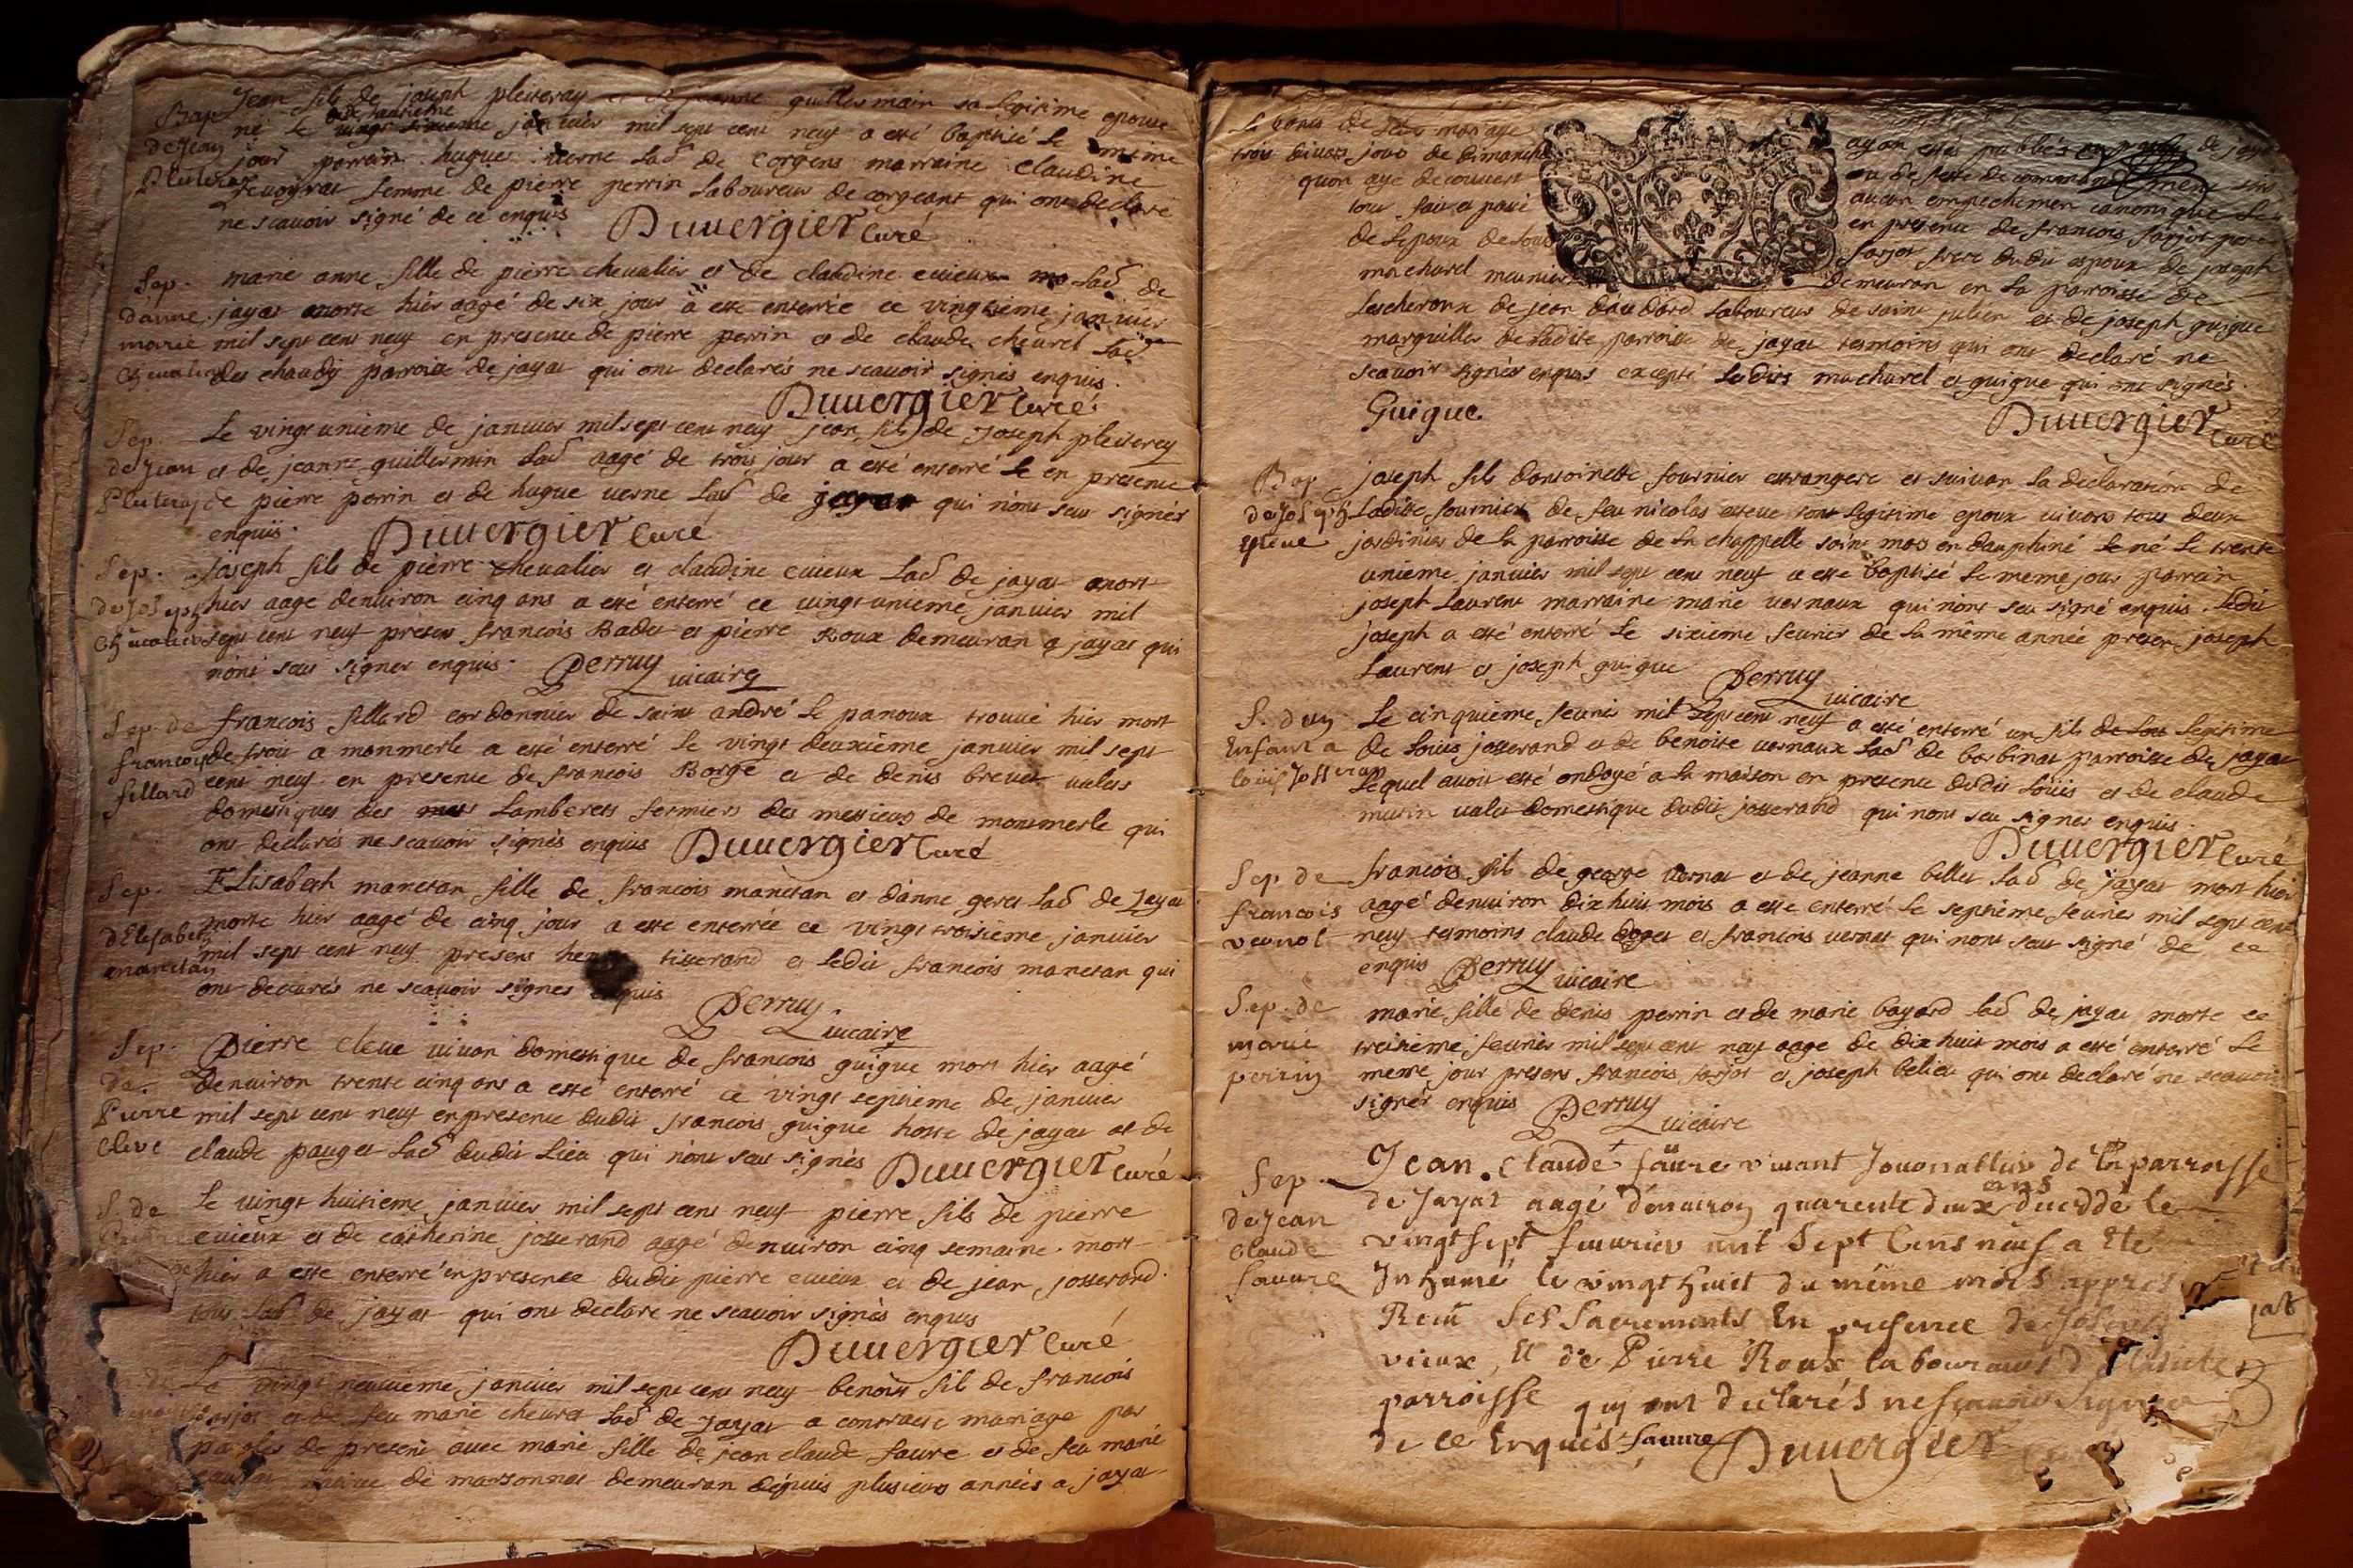 Bap Jean fils de joseph pleiteray et de jeanne guillermain sa legitime epouse
de Jean né le dix huitieme janvier mil sept cent neuf a esté baptisé le meme
Pluteray jour parrain hugue verne lab de Corgens marraine Claudine
femme de pierre perrin laboureur de corgeant qui ont declaré
ne scavoir signé de ce enquis Duuergier Curé
Sep. marie anne fille de pierre chevalier et de claudine euieux lab de
d'anne jayat morte hier aagé de six jour a esté enterrée ce vingtieme janvier
marie mil sept cent neuf en presence de pierre perrin et de claude cheurel lab
Chevalier des chaudy parroisse de jayat qui ont declarés ne scavoir signés enquis.
Duuergier Curé
Sep. Le vingt unieme de janvier mil sept cent neuf jean fils de Joseph pleiterey
de Jean et de jeanne guillermin lab aagé de trois jour a esté enterré le en presence
Pluteray de pierre perrin et de hugue verne lab de jayat qui n'ont seu signer
enquis. Duuergier Curé
Sep. Joseph fils de pierre chevalier et claudine euieux lab de jayat mort
de Joseph hier aage denuiron cinq ans a esté enterré ce vingt unieme janvier mil
Chevalier sept cent neuf presens francois Badet et pierre Roux demeuran a jayat qui
n'ont seu signer enquis. Perruy vicaire
Sep. de francois fillard cordonnier de saint andré le panoux trouvé hier mort
francoy de froit a monmerle a esté enterré le vingt deuxième janvier mil sept
fillard cent neuf en presence de francois Borge et de denis brevet valets
domestiques des Lamberets fermiers des messieurs de montmerle qui
ont declarés ne scavoir signés enquis Duuergier Curé
Sep. ELisabeth manetan fille de francois manetan et d'anne geret lab de Jayat
d'Elisabeth morte hier aagé de cinq jour a esté enterrée ce vingt troisième janvier
manetan mil sept cent neuf presens tisserand et ledit francois manetan qui
ont declarés ne scavoir signes enquis
Perruy vicaire
Sep. Pierre cleue vivan domestique de francois guigue mort hier aagé
de denuiron trente cinq ans a esté enterré ce vingt septieme de janvier
Pierre mil sept cent neuf en presence dudit francois guigue hoste de jayat et de
Cleve claude pauget lab dudit lieu qui n'ont seu signés Duuergier Curé
S. de Le vingt huitieme janvier mil sept cens neuf pierre fils de pierre
euieux et de catherine josserand aagé denuiron cinq semaine mort
hier a esté enterré en presence dudit pierre euieux et de jean josserand
tous lab de jayat qui ont declare ne scavoir signés enquis
Duuergier Curé
Le vingt neuvieme janvier mil sept cens neuf benoist fil de francois
farjot et de feu marie cheurel lab de Jayat a contracté mariage par
paroles de present avec marie fille de jean claude faure et de feu marie
native de marsonnas demeuran depuis plusieurs années a jayat
Le bans de leur mariage ayan estés publiés de jayat
trois divers jours de dimanche ou de feste de commandement sans
quon aye decouvert aucun empechemen canonique le
tout fait et passé en presence de francois farjot pere
de lepoux de farjot frere dudit espoux de joseph
macharel meunier demeuran en la parroisse de
Lescheroux de jean daudard laboureur de saint julien et de joseph guigue
marguiller de ladite parroisse de jayat tesmoins qui ont declaré ne
scavoir signer enquis excepté lesdits macharel et guigue qui ont signés.
Guigue Duuergier Curé
Bap joseph fils dantoinette fournier estrangere et suivan la declaration de
de Joseph ladite fournier de feu nicolas esteue son legitime epoux vivans tous deux
Esteue jardinier de la parroisse de la chappelle saint mars en dauphiné le né le trente
unieme janvier mil sept cens neuf a esté baptisé le meme jour parrain
joseph Laurent marraine marie vernaux qui n'ont seu signé enquis. Ledit
joseph a esté enterré le sixieme feurier de la même année presen joseph
Laurent et joseph guigue Perruy vicaire
S. d'un Le cinquième feurier mil sept cent neuf a esté enterré un fils legitime
Enfant a de louis josserand et de benoite vernaux lab de barbinat parroisse de jayat
louis Josseran lequel avoit esté ondoyé a la maison en presence dudit louis et de claude
murin valet domestique dudit josserand qui nont seu signer enquis.
Duuergier Curé
Sep de francois fils de george vernat et de jeanne billet lab de jayat mort hier
francois aagé denuiron dix huit mois a esté enterré le septieme feurier mil sept cent
vernol neuf tesmoins claude et francois vernat qui nont seu signé de ce
enquis Perruy vicaire
Sep. de marie fille de denis perrin et de marie bayard lab de jayat morte ce
marie treizieme feurier mil sept cent neuf aage de dix huit mois a esté enterré le
perrin meme jour presens francois farjot et joseph belieu qui ont declaré ne scavoir
signer enquis Perruy vicaire
Sep. Jean Claude faure vivant Journallier de la parroisse
de Jean de Jayat aagé d'enuiron quarente deux ans decedde le
Claude vingt sept feurier mil Sept Cens neuf a Eté
fauure Inhumé le vingt huit du même mois appres
Receu Ses Sacrements En presence de Joseph
vieux, Et de Pierre Roux laboureurs
parroisse qui ont declarés ne scavoir signer
de ce Enquis fauure Duuergier